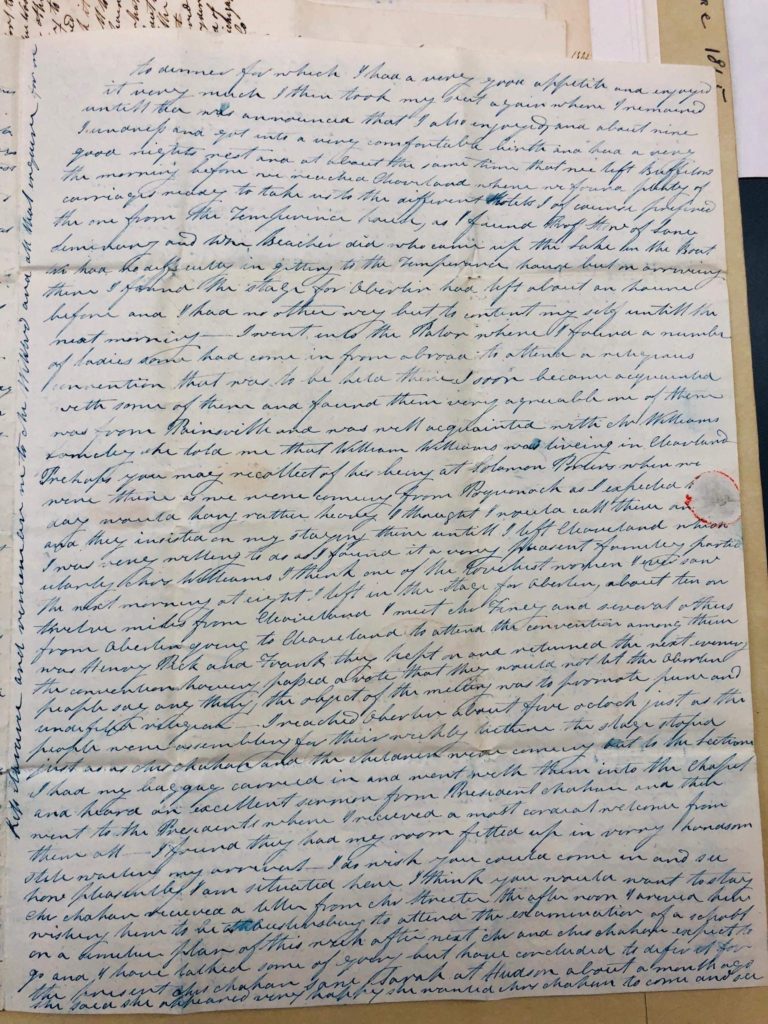 to dinner for which I had a very good appetite and enjoyed
it very much I then took my seat again where I remained
untill tea was announced that I also enjoyed, and about nine
I undress and got into a very comfortable birth and had a very
good nights rest and at about the same time that we left Buffilow
the morning before we reached Cleaveland where we found plenty of
carriages ready to take us to the different Hotels I of course prefered
the one from the Temperence house, as I found Prof Stow of Lane
Seminary and Wm Beacher did who came up the Lake in the Boat
had no difficulty in getting to the Temperence house but on arriving
there I found the stage for Oberlin had left about an houre
before and I had no other way but to content my self untill the
next morning — I went into the Parlor where I found a number
of ladies some had come in from abroad to attend a religious
convention that was to be held there I soon became acquainted
with some of them and found them very agreeable one of them
was from Painsville and was well acquainted with Mr Williams
family she told me that William Williams was liveing in Cleavland
Perhaps you may recollect of his being at Solomon when we
were there as we were comeing from Poquonock as I expected
day would hang rather heavy I thought I would call there
and they insisted on my staying there untill I left Cleaveland which
I was very willing to do as I found it a very pleasent family partic
ularly Mrs Williams I think one of the loveliest women I ever saw
the next morning at eight I left in the stage for Oberlin, about ten or
twelve miles from Cleaveland I meet Mr Finey and several others
from Oberlin going to Cleaveland to attend the convention among them
was Henry Peck and Frank they kept on and returned the next evening
the convention having passed a vote that they would not let the Oberlin
people say any thing, the object of the meeting was to promote pure and
undefiled religion — I reached Oberlin about five oclock just as the
people were assembling for their weekly lecture the stage stoped
just as Mrs Mahan and the children were comeing out to the lecture
I had my baggage carried in and went with them into the Chapel
and heard an excellent sermon from President Mahan and then
went to the Presidents where I recieved a most cordial welcome from
them all — I found they had my room fitted up in very handsom
stile waiting my arrival — I do wish you could come in and see
how pleasently I am situated here I think you would want to stay
Mr Mahan recieved a letter from Mr Streeter the after noon I arived here
wishing them to be at to attend the examination of a school
on a similar plan of this week after next, Mr and Mrs Mahan expect to
go and I have talked some of going but have concluded to defer it for
the present Mrs Mahan saw Sarah at Hudson about a month ago
she said she appeared very happy she wanted Mrs Mahan to come and see
and remember me to Mr Willard and all that enquire for me